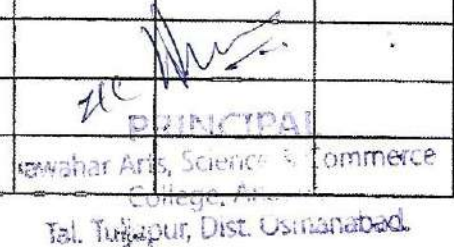 PRINCIPAL
Jawahar Arts, Science & Commerce
College,
Tal. Tuljapur, Dist. Osmanabad.